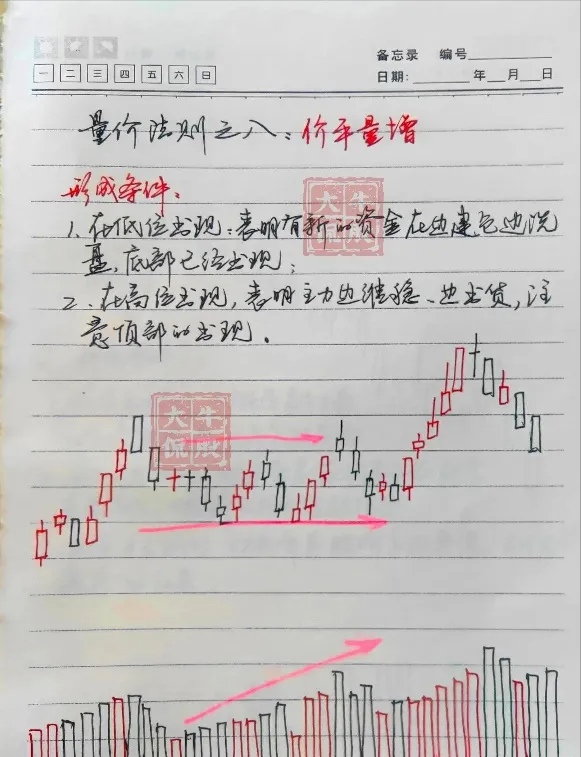 备忘录 编号
一 二 三 四 五 六 日
日期: 年 月 日
量价法则之八:价平量增
形成条件:
1、在低位出现:表明有新的资金在边建仓边洗
盘,底部已经出现;
2、在高位出现,表明主力边维稳、边出货,注
意顶部的出现。
大牛
侃股
大牛
侃股